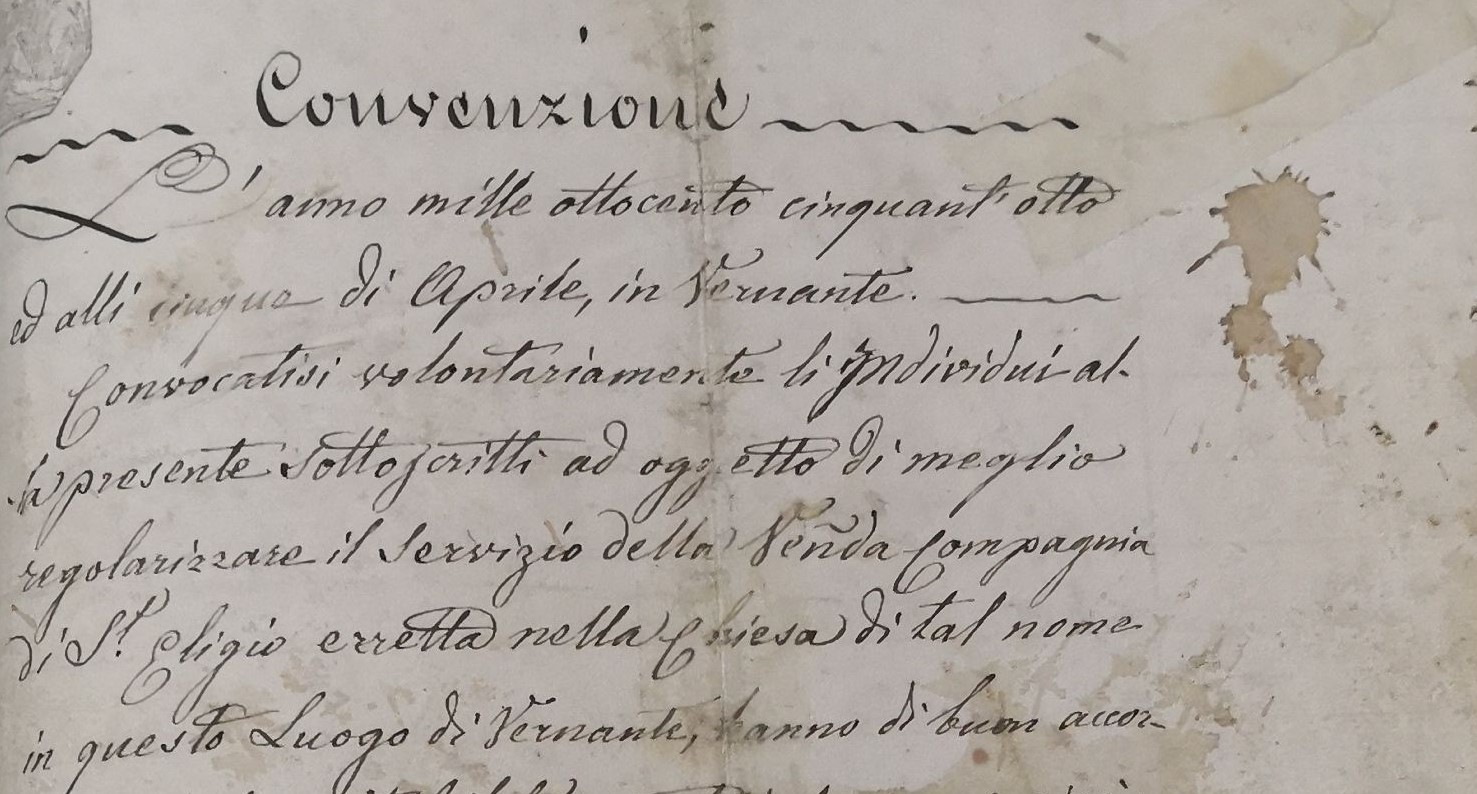 Convenzione
L'anno mille ottocento cinquant'otto
ed alli cinque di Aprile, in Vernante.
Convocatisi volontariamente li Individui al-
la presente sottoscritti ad oggetto di meglio
regolarizzare il Servizio della Venda Compagnia
di St. Eligio erretta nella Chiesa di tal nome
in questo Luogo di Vernante, hanno di buon accor-